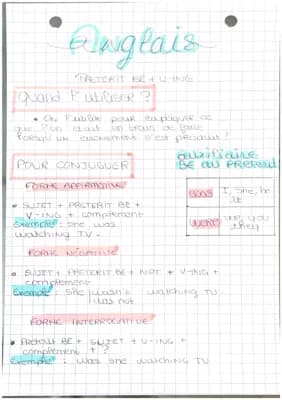 Anglais
PRETERIT BE + V-ING
Quand l'utiliser ?
• On l'utilise pour expliquer ce
que l'on était en train de faire
lorsqu'un événement s'est produit !
POUR CONJUGUER
auxiliaire
BE au PRETERIT
FORME AFFIRMATIVE
was I, she, he
it
were we, you
they
• SUJET + PRETERIT BE +
V-ING + complément
Exemple : She was
watching TV.
FORME NEGATIVE
• SUJET + PRETERIT BE + NOT + V-ING +
complément
Exemple : She wasn't watching TV.
was not
FORME INTERROGATIVE
• Prétérit BE + SUJET + V-ING +
complément + ?
Exemple : Was she watching TV